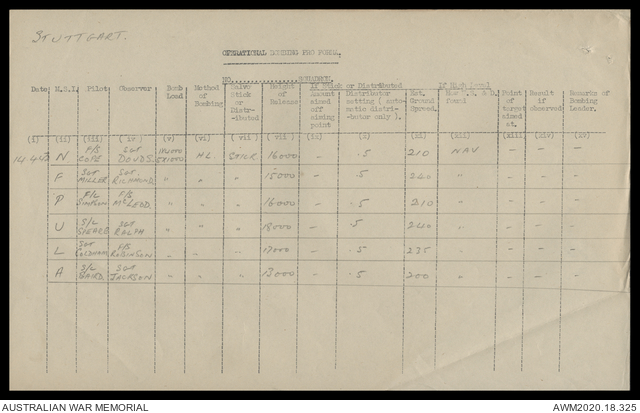 STUTTGART.
OPERATIONAL BOMBING PRO FORMA.
NO. SQUADRON.
Date M.S.I. Pilot Observer Bomb Load Method of Bombing Salvo Stick or Distr-ibuted Height of Release If Stick or Distributed Amount sized off aiming point Distributor setting (auto-matic distri-butor only). Est. Ground Speed. If High Level How found Point of target aimed at. Result if observed Remarks of Bombing Leader.
(i) (ii) (iii) (iv) (v) (vi) (vii) (vii) (ix) (x) (xi) (xii) (xiii) (xiv) (xv)
14.4.43 N F/S COPE SGT DOUDS. HL STICK 16000 - .5 210 NAV
F SGT MILLER SGT RICHMOND. " " " 15000 - .5 220 "
P F/L SIMPSON F/S McLEOD. " " " 16000 - .5 210 "
U S/L SGT RALPH " " " 18000 - .5 240 "
L SGT F/S ROBINSON " " " 17000 - .5 235 "
A S/L BAIRD. SGT JACKSON " " " 13000 - .5 200 "
AUSTRALIAN WAR MEMORIAL
AWM2020.18.325